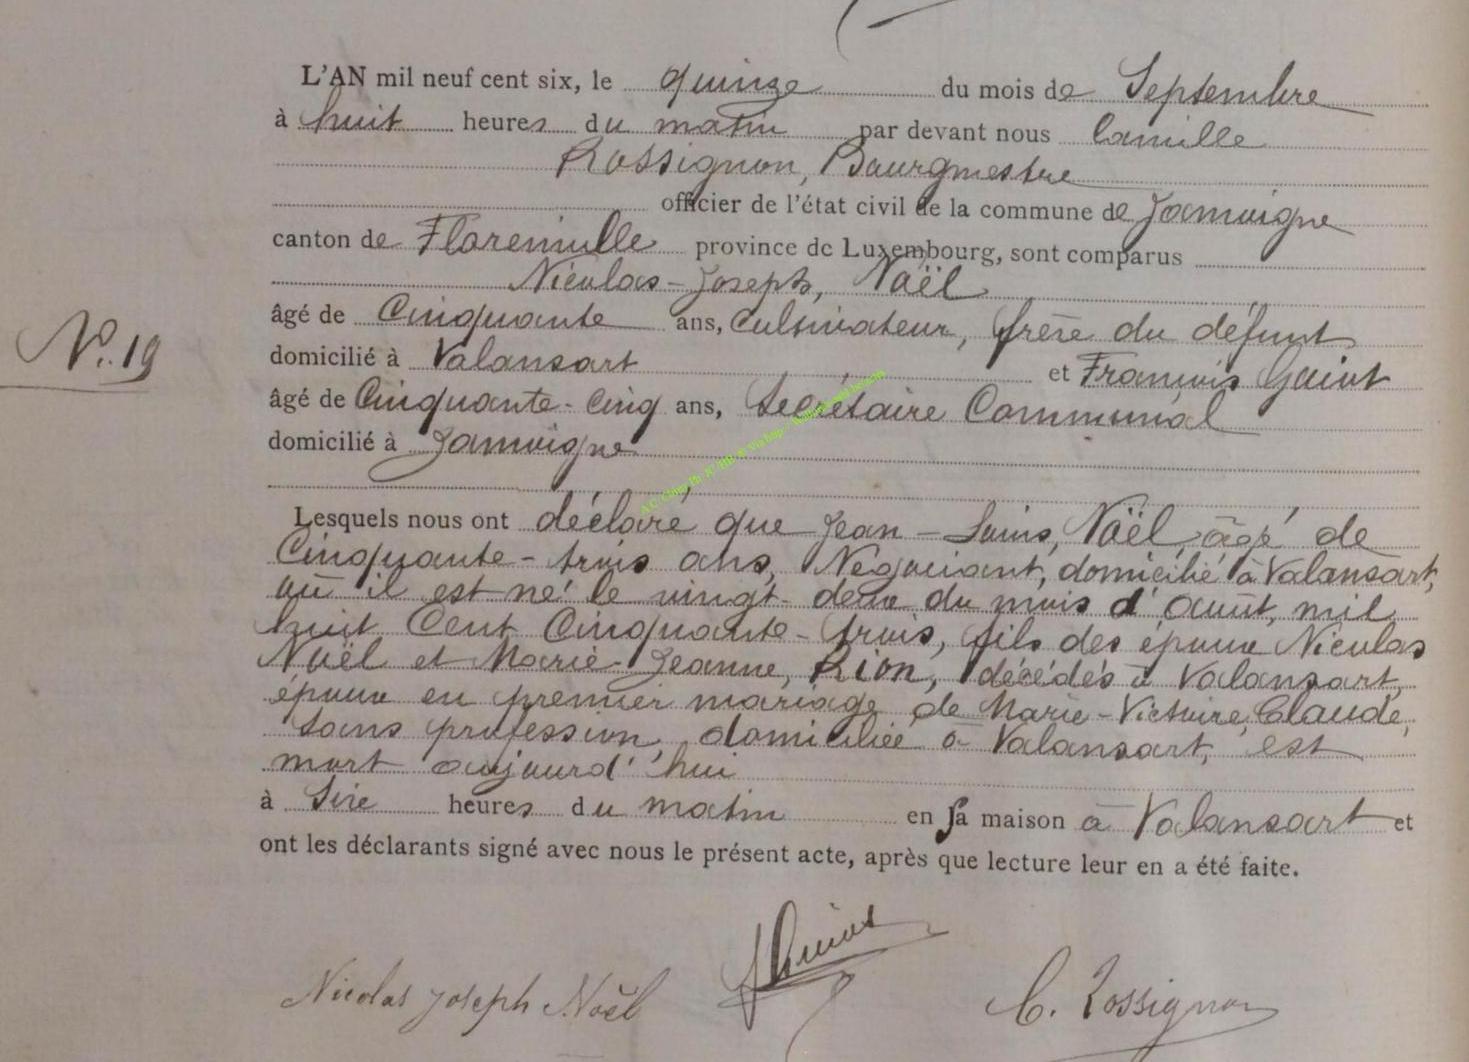 L'AN mil neuf cent six, le quinze du mois de Septembre
à huit heures du matin par devant nous Camille
Rossignon, Bourgmestre
officier de l'état civil de la commune de Jamoigne
canton de Florenville province de Luxembourg, sont comparus
Nicolas-Joseph, Noël
âgé de Cinquante ans, Cultivateur, frère du défunt
domicilié à Valansart et François
N°. 19
âgé de Cinquante-cinq ans, Secrétaire Communal
domicilié à Jamoigne
Lesquels nous ont déclaré que Jean-Louis, Noël âgé de
Cinquante-trois ans, Négociant, domicilié à Valansart,
où il est né le vingt-deux du mois d'août, mil
huit Cent Cinquante-trois, fils des époux Nicolas
Noël et Marie-Jeanne, Rion, décédés à Valansart,
époux en premier mariage de Marie-Victoire, Claude,
sans profession, domiciliée à Valansart, est
mort aujourd'hui
à Six heures du matin en sa maison à Valansart et
ont les déclarants signé avec nous le présent acte, après que lecture leur en a été faite.
Nicolas Joseph Noël
C. Rossignon